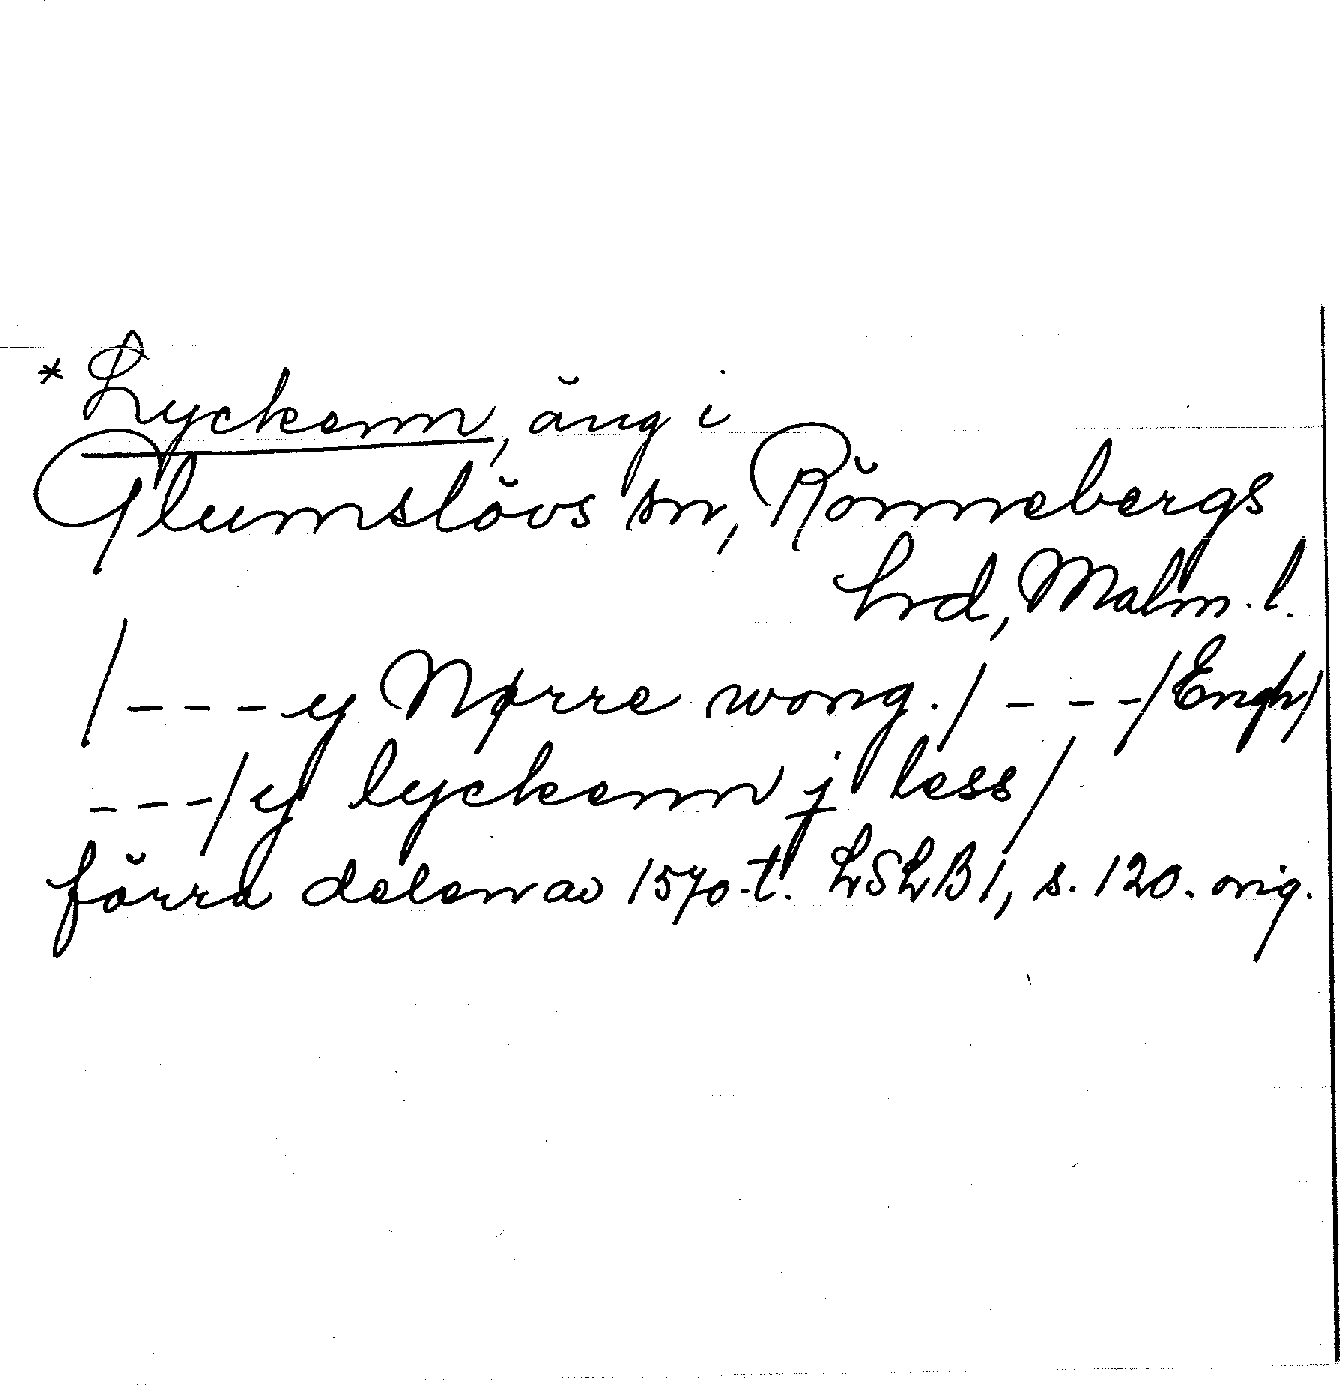 * Lyckenn, äng i
Glumslövs sn, Rönnebergs
hrd, Malm. l.
/ - - - y Nørre wong. / - - - / Engh /
- - - / y lyckenn j less /
förra delen av 1570-t. LSLB 1, s. 120. orig.